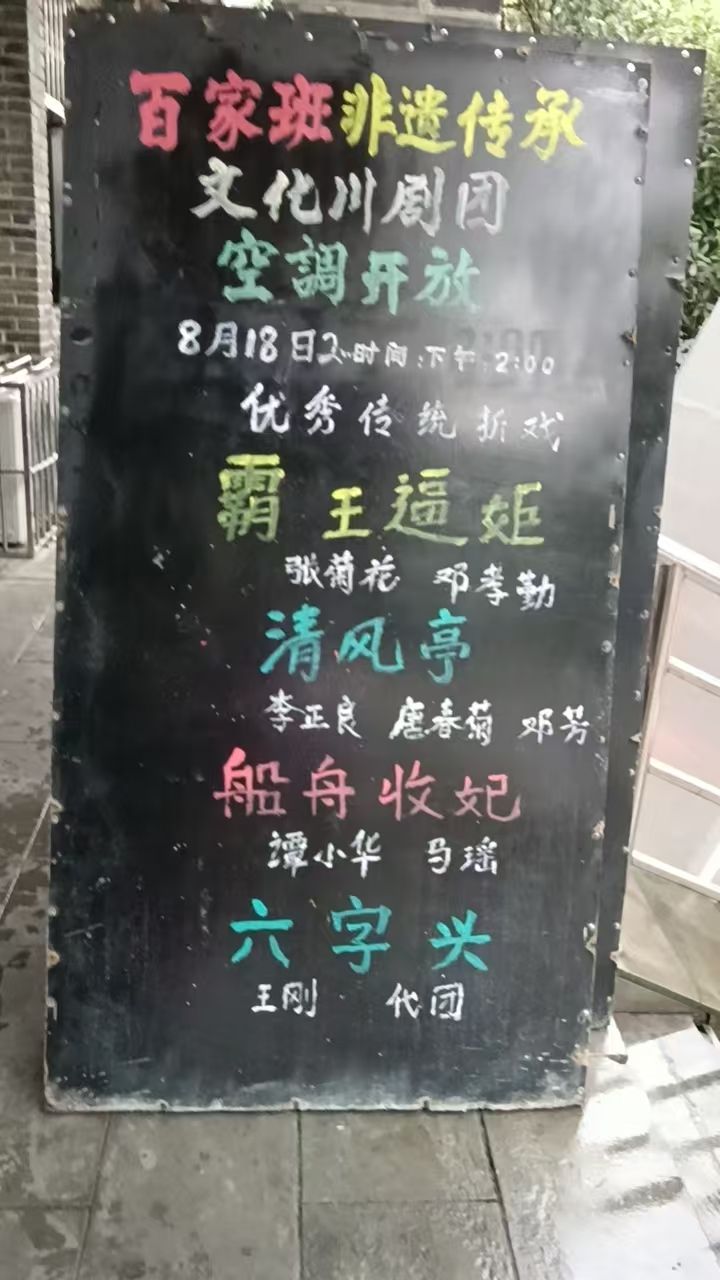 百家班非遗传承
文化川剧团
空調开放
8月18日 时间:下午:2:00
优秀传统折戏
霸王逼姬
张菊花 邓孝勤
清风亭
李正良 唐春菊 邓芳
船舟收妃
谭小华 马瑶
六字头
王刚 代团